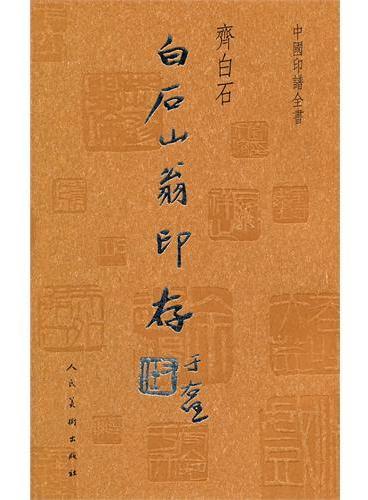 中國印譜全書
齊白石
白石山翁印存
于右任
人民美術出版社